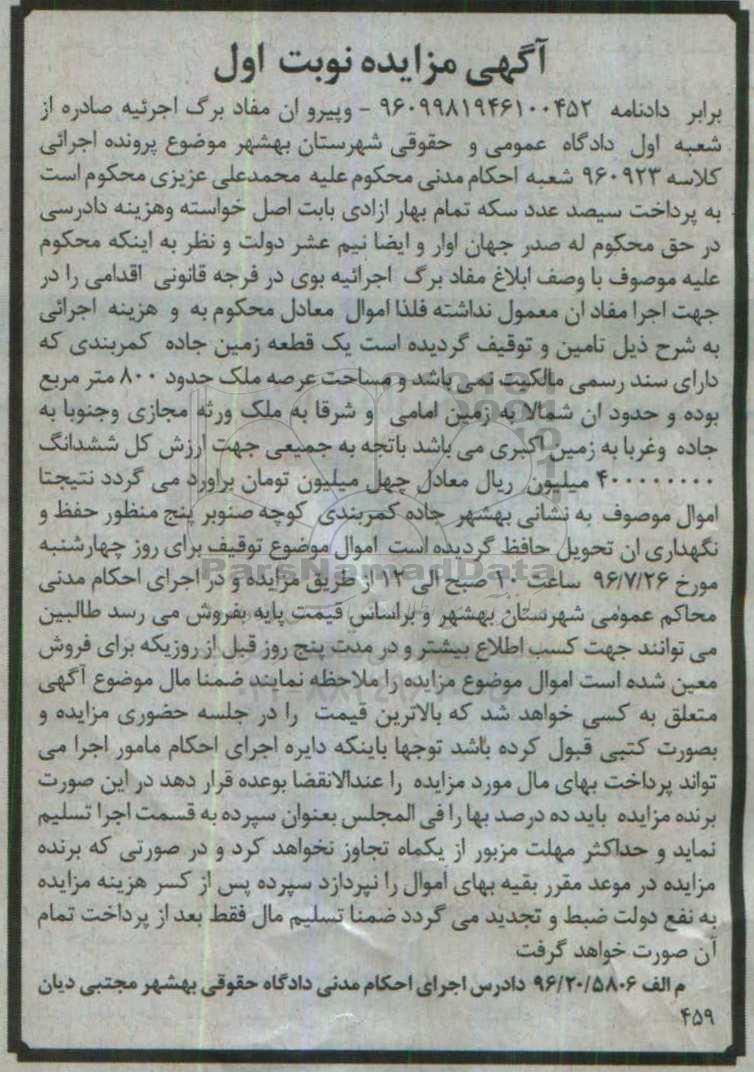 آگهی مزایده نوبت اول
برابر دادنامه ۹۶۰۹۹۸۱۹۴۶۱۰۰۴۵۲ - وپیرو ان مفاد برگ اجرئیه صادره از
شعبه اول دادگاه عمومی و حقوقی شهرستان بهشهر موضوع پرونده اجرائی
کلاسه ۹۶۰۹۲۳ شعبه احکام مدنی محکوم علیه محمدعلی عزیزی محکوم است
به پرداخت سیصد عدد سکه تمام بهار ازادی بابت اصل خواسته وهزینه دادرسی
در حق محکوم له صدر جهان اوار و ایضا نیم عشر دولت و نظر به اینکه محکوم
علیه موصوف با وصف ابلاغ مفاد برگ اجرائیه بوی در فرجه قانونی اقدامی را در
جهت اجرا مفاد ان معمول نداشته فلذا اموال معادل محکوم به و هزینه اجرائی
به شرح ذیل تامین و توقیف گردیده است یک قطعه زمین جاده کمربندی که
دارای سند رسمی مالکیت نمی باشد و مساحت عرصه ملک حدود ۸۰۰ متر مربع
بوده و حدود ان شمالا به زمین امامی و شرقا به ملک ورثه مجازی وجنوبا به
جاده وغربا به زمین اکبری می باشد باتجه به جمیعی جهت ارزش کل ششدانگ
۴۰۰۰۰۰۰۰۰ میلیون ریال معادل چهل میلیون تومان براورد می گردد نتیجتا
اموال موصوف به نشانی بهشهر جاده کمربندی کوچه صنوبر پنج منظور حفظ و
نگهداری ان تحویل حافظ گردیده است اموال موضوع توقیف برای روز چهارشنبه
مورخ ۹۶/۷/۲۶ ساعت ۱۰ صبح الی ۱۲ از طریق مزایده و در اجرای احکام مدنی
محاکم عمومی شهرستان بهشهر و براساس قیمت پایه بفروش می رسد طالبین
می توانند جهت کسب اطلاع بیشتر و در مدت پنج روز قبل از روزیکه برای فروش
معین شده است اموال موضوع مزایده را ملاحظه نمایند ضمنا مال موضوع آگهی
متعلق به کسی خواهد شد که بالاترین قیمت را در جلسه حضوری مزایده و
بصورت کتبی قبول کرده باشد توجها باینکه دایره اجرای احکام مامور اجرا می
تواند پرداخت بهای مال مورد مزایده را عندالانقضا بوعده قرار دهد در این صورت
برنده مزایده باید ده درصد بها را فی المجلس بعنوان سپرده به قسمت اجرا تسلیم
نماید و حداکثر مهلت مزبور از یکماه تجاوز نخواهد کرد و در صورتی که برنده
مزایده در موعد مقرر بقیه بهای اموال را نپردازد سپرده پس از کسر هزینه مزایده
به نفع دولت ضبط و تجدید می گردد ضمنا تسلیم مال فقط بعد از پرداخت تمام
آن صورت خواهد گرفت
م الف ۹۶/۲۰/۵۸۰۶ دادرس اجرای احکام مدنی دادگاه حقوقی بهشهر مجتبی دیان
۴۵۹
ParsNamadData